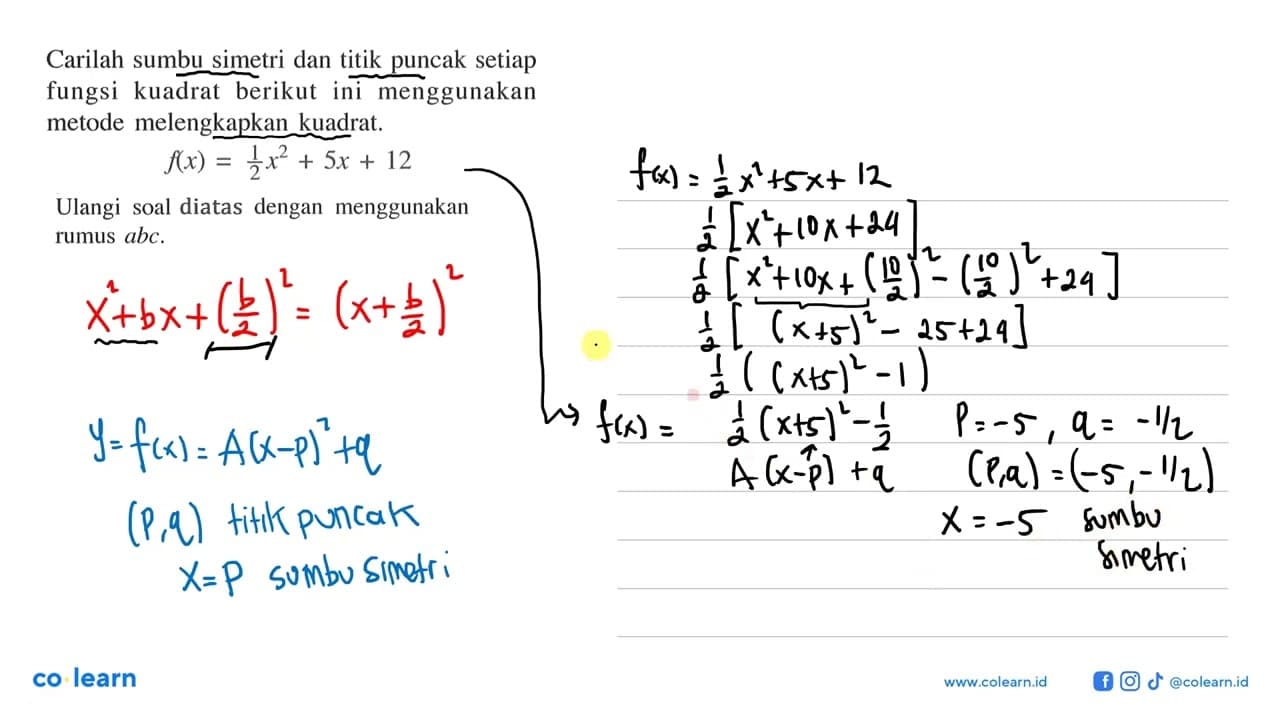 Carilah sumbu simetri dan titik puncak setiap
fungsi kuadrat berikut ini menggunakan
metode melengkapkan kuadrat.
f(x) = 1/2 x² + 5x + 12
Ulangi soal diatas dengan menggunakan
rumus abc.
x² + bx + (b/2)² = (x + b/2)²
y = f(x) = A(x-p)² + q
(p,q) titik puncak
x = p sumbu simetri
f(x) = 1/2 x² + 5x + 12
1/2 [x² + 10x + 24]
1/2 [x² + 10x + (10/2)² - (10/2)² + 24]
1/2 [(x+5)² - 25 + 24]
1/2 ((x+5)² - 1)
f(x) = 1/2 (x+5)² - 1/2 P = -5, q = -1/2
A(x-p) + q (P,q) = (-5, -1/2)
x = -5 sumbu
simetri
co learn
www.colearn.id
@colearn.id